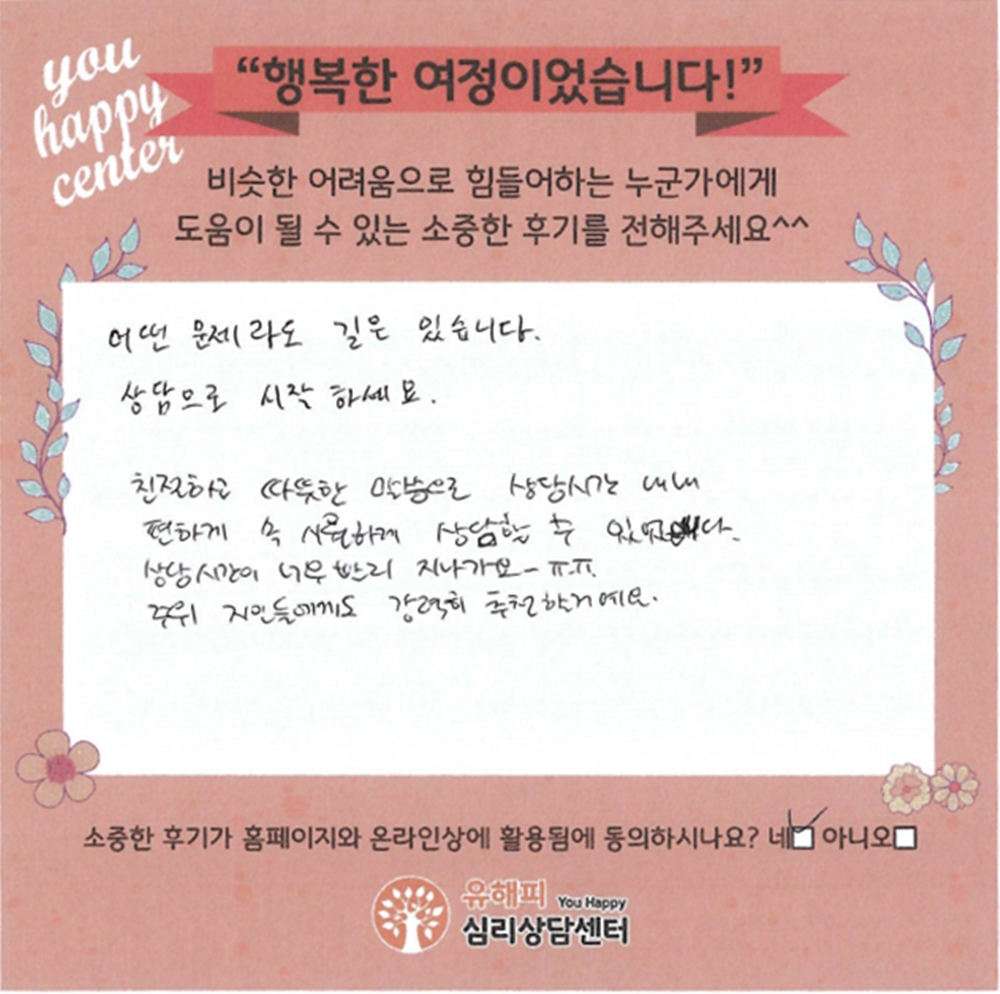 you
happy
center
“행복한 여정이었습니다!”
비슷한 어려움으로 힘들어하는 누군가에게
도움이 될 수 있는 소중한 후기를 전해주세요^^
어떤 문제라도 길은 있습니다.
상담으로 시작 하세요.
친절하고 따뜻한 으로 상담시간 내내
편하게 속 시원하게 상담할 수
상담시간이 너무 빨리 지나가요~ㅠㅠ.
주위 지인들에게도 강력히 추천한거예요.
소중한 후기가 홈페이지와 온라인상에 활용됨에 동의하시나요? 네 아니오
유해피 You Happy
심리상담센터